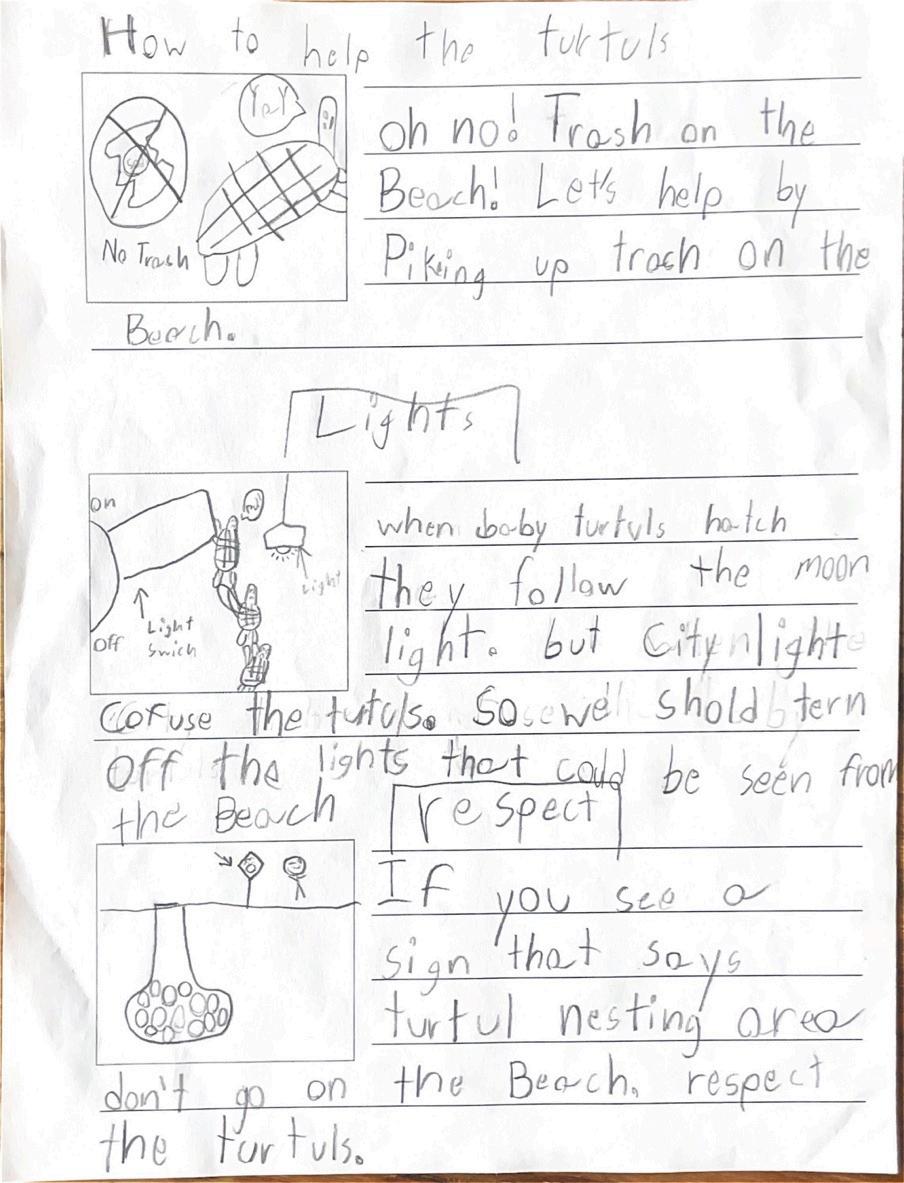 How to help the turtuls
YaY
No Trash
oh no! Trash on the
Beach! Let's help by
Piking up trach on the
Beach.
Lights
on
off
Light
Swich
Light
when baby turtuls hatch
they follow the moon
light. but City light
Cofuse the tutuls. So we shold tern
off the lights that could be seen from
the Beach
respect
If you see a
sign that says
turtul nesting area
don't go on the Beach. respect
the turtuls.